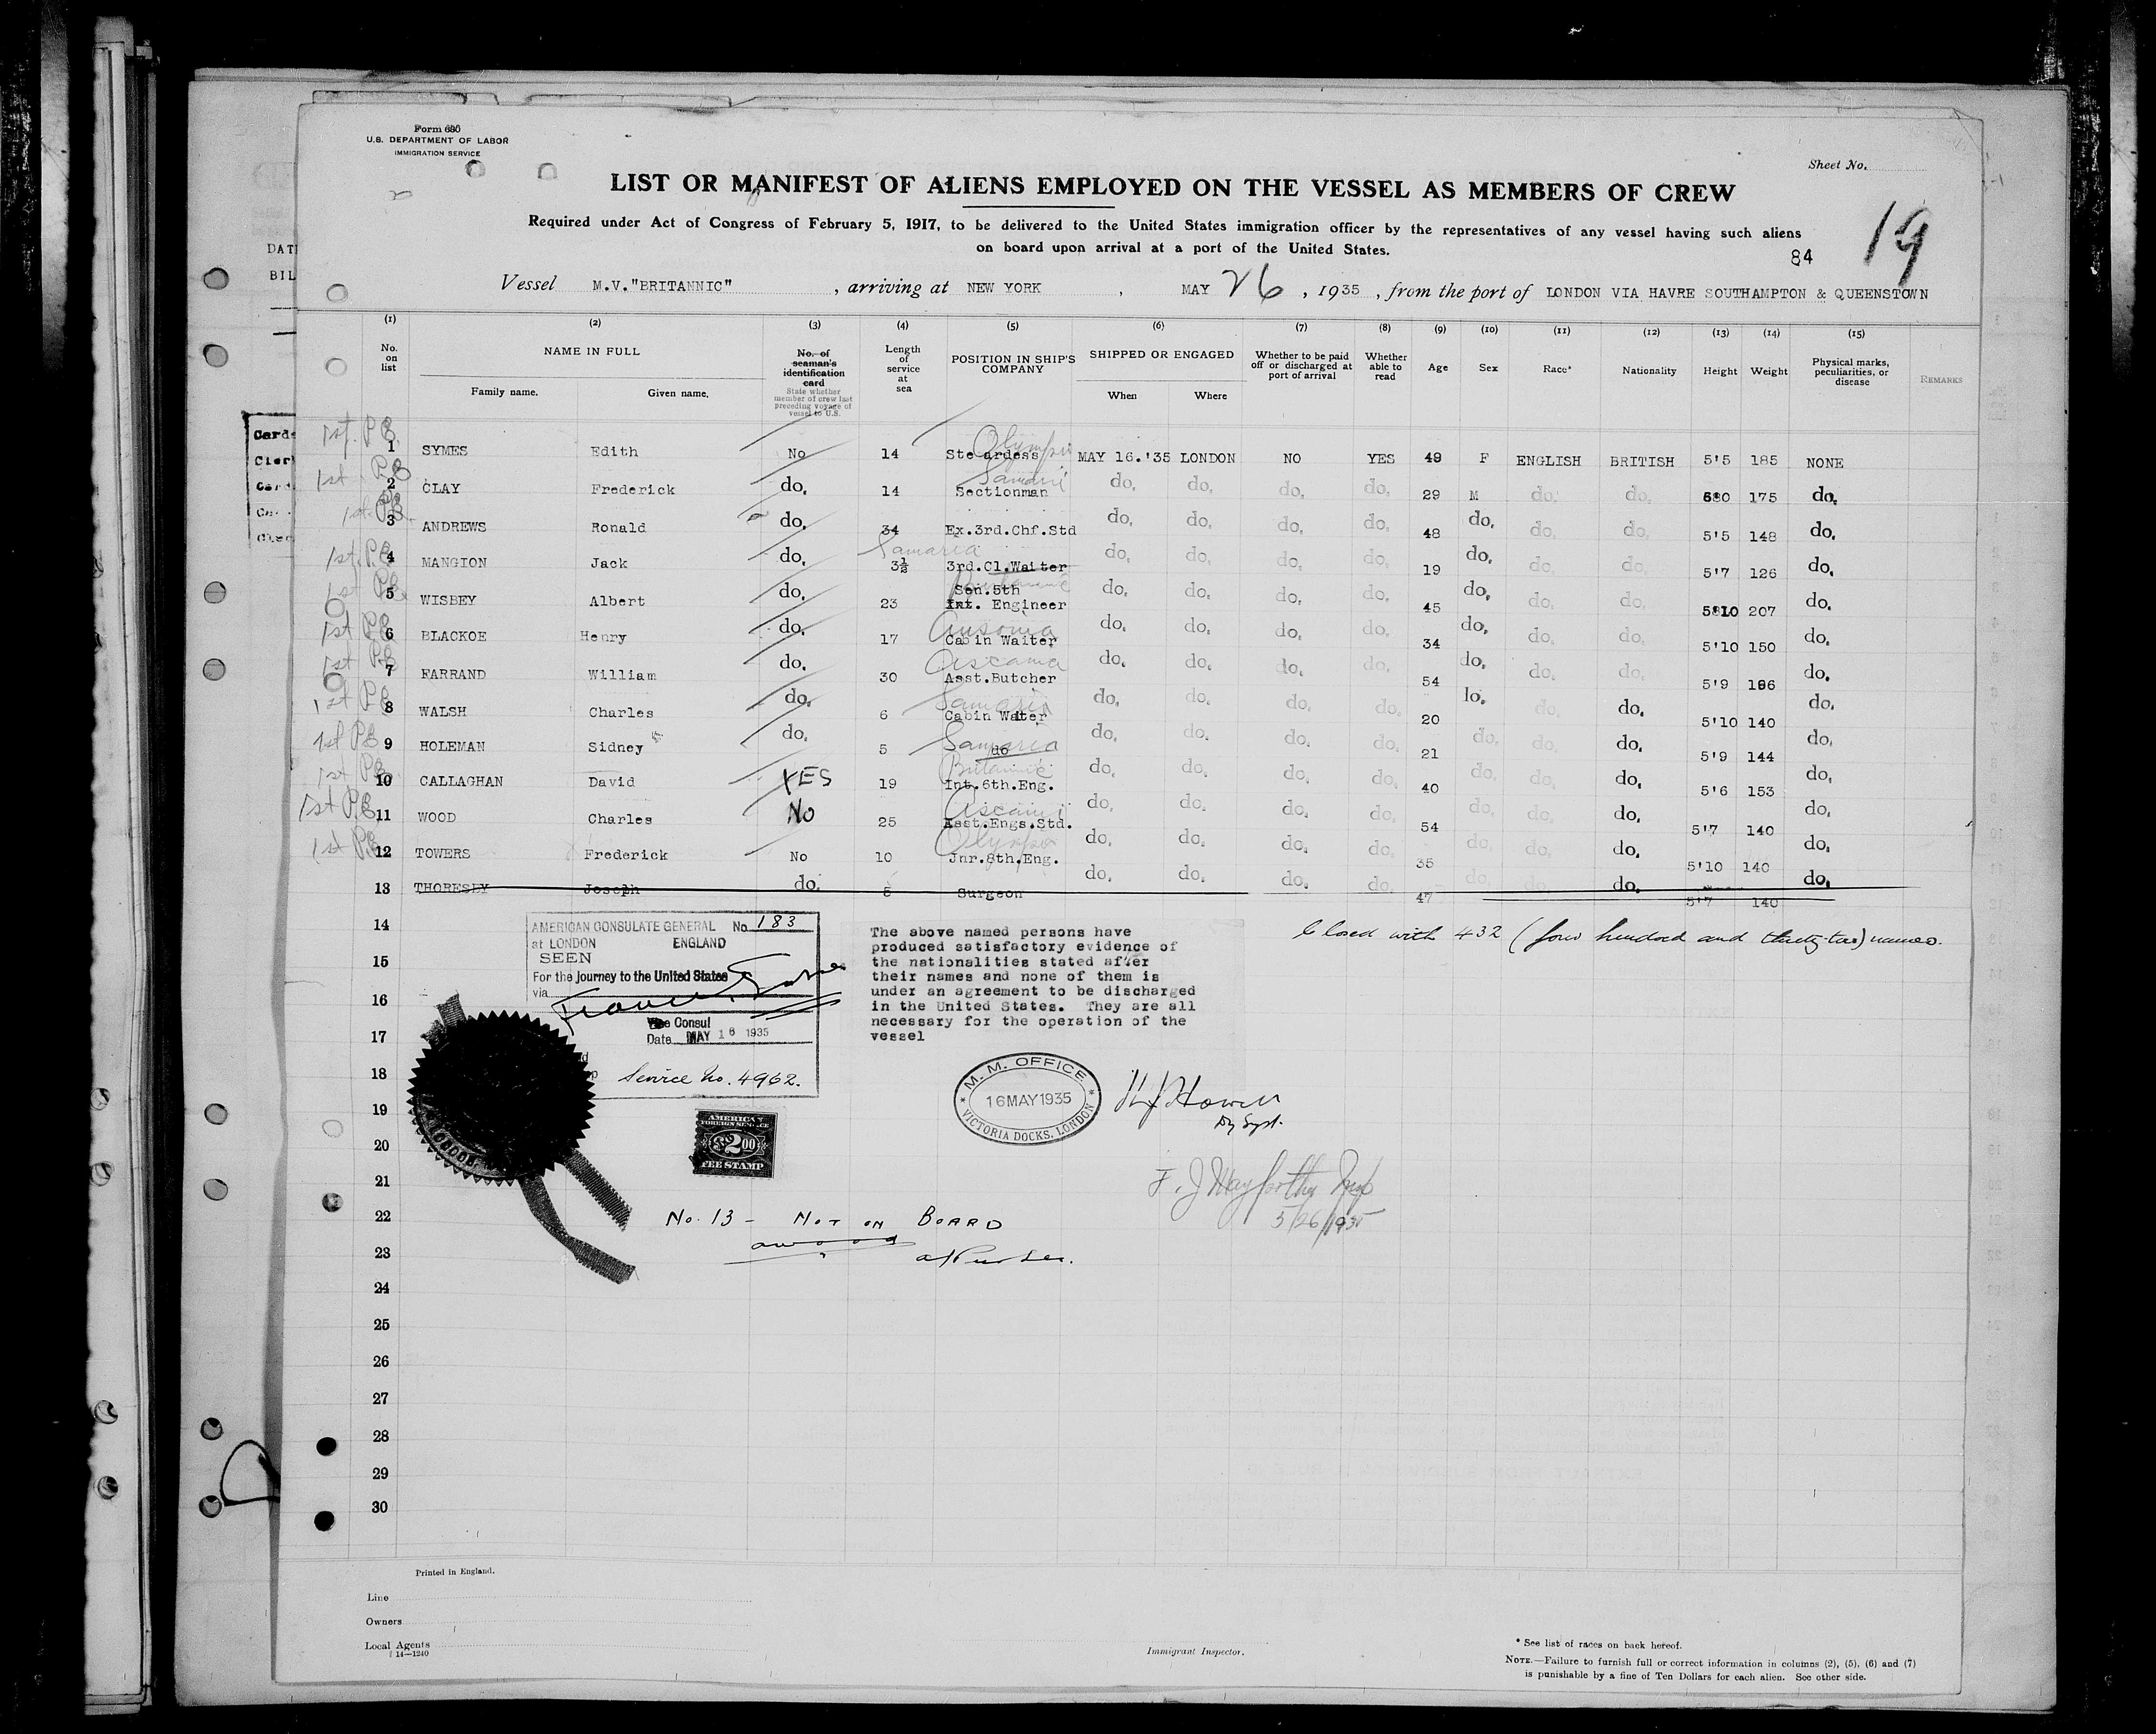 Form 680
U.S. DEPARTMENT OF LABOR
IMMIGRATION SERVICE
Sheet No.
LIST OR MANIFEST OF ALIENS EMPLOYED ON THE VESSEL AS MEMBERS OF CREW
Required under Act of Congress of February 5, 1917, to be delivered to the United States immigration officer by the representatives of any vessel having such aliens
on board upon arrival at a port of the United States.
84
19
DAT
BIL
Vessel M.V."BRITANNIC", arriving at NEW YORK, MAY 26, 1935, from the port of LONDON VIA HAVRE SOUTHAMPTON & QUEENSTOWN
(1) (2) (3) (4) (5) (6) (7) (8) (9) (10) (11) (12) (13) (14) (15)
No. on list NAME IN FULL Family name. Given name. No. of seaman's identification card State whether member of crew last preceding voyage of vessel to U.S. Length of service at sea POSITION IN SHIP'S COMPANY SHIPPED OR ENGAGED When Where Whether to be paid off or discharged at port of arrival Whether able to read Age Sex Race* Nationality Height Weight Physical marks, peculiarities, or disease REMARKS
1st P.E. 1 SYMES Edith No 14 Stewardess Olympic MAY 16.'35 LONDON NO YES 49 F ENGLISH BRITISH 5'5 185 NONE
1st P.E. 2 CLAY Frederick do. 14 Sectionman do. do. do. do. 29 M do. do. 680 175 do.
1st P.E. 3 ANDREWS Ronald do. 34 Ex.3rd.Chf.Std do. do. do. do. 48 do. do. do. 5'5 148 do.
1st P.E. 4 MANGION Jack do. 3½ Samaria 3rd.Cl.Waiter do. do. do. do. 19 do. do. do. 5'7 126 do.
1st P.E. 5 WISBEY Albert do. 23 Britannic Sen.5th Int. Engineer do. do. do. do. 45 do. do. do. 5'10 207 do.
1st P.E. 6 BLACKOE Henry do. 17 Ausonia Cabin Waiter do. do. do. do. 34 do. do. do. 5'10 150 do.
1st P.E. 7 FARRAND William do. 30 Ascania Asst.Butcher do. do. do. do. 54 do. do. do. 5'9 186 do.
1st P.E. 8 WALSH Charles do. 6 Samaria Cabin Waiter do. do. do. do. 20 do. do. do. 5'10 140 do.
1st P.E. 9 HOLEMAN Sidney do. 5 Samaria do do. do. do. do. 21 do. do. do. 5'9 144 do.
1st P.E. 10 CALLAGHAN David YES 19 Britannic Int.6th.Eng. do. do. do. do. 40 do. do. do. 5'6 153 do.
1st P.E. 11 WOOD Charles No 25 Ascania Asst.Engs.Std. do. do. do. do. 54 do. do. do. 5'7 140 do.
1st P.E. 12 TOWERS Frederick No 10 Olympic Jnr.8th.Eng. do. do. do. do. 35 do. do. do. 5'10 140 do.
13 THORESBY Joseph do. 5 Surgeon do. do. do. do. 47 do. do. do. 5'7 140 do.
14
15
16
17
18
19
20
21
22
23
24
25
26
27
28
29
30
Closed with 432 (four hundred and thirty-two) names.
AMERICAN CONSULATE GENERAL No. 183
at LONDON ENGLAND
SEEN
For the journey to the United States
via
Vice Consul
Date MAY 16 1935
Service No. 4962.
The above named persons have
produced satisfactory evidence of
the nationalities stated after
their names and none of them is
under an agreement to be discharged
in the United States. They are all
necessary for the operation of the
vessel
M. M. OFFICE
16 MAY 1935
VICTORIA DOCKS, LONDON
Dy Supt.
AMERICAN
FOREIGN SERVICE
$2.00
FEE STAMP
LONDON
5/26/1935
No. 13 - NOT ON BOARD
a/Purser.
Printed in England.
Line
Owners
Local Agents
14—1240
Immigrant Inspector.
* See list of races on back hereof.
NOTE.—Failure to furnish full or correct information in columns (2), (5), (6) and (7)
is punishable by a fine of Ten Dollars for each alien. See other side.